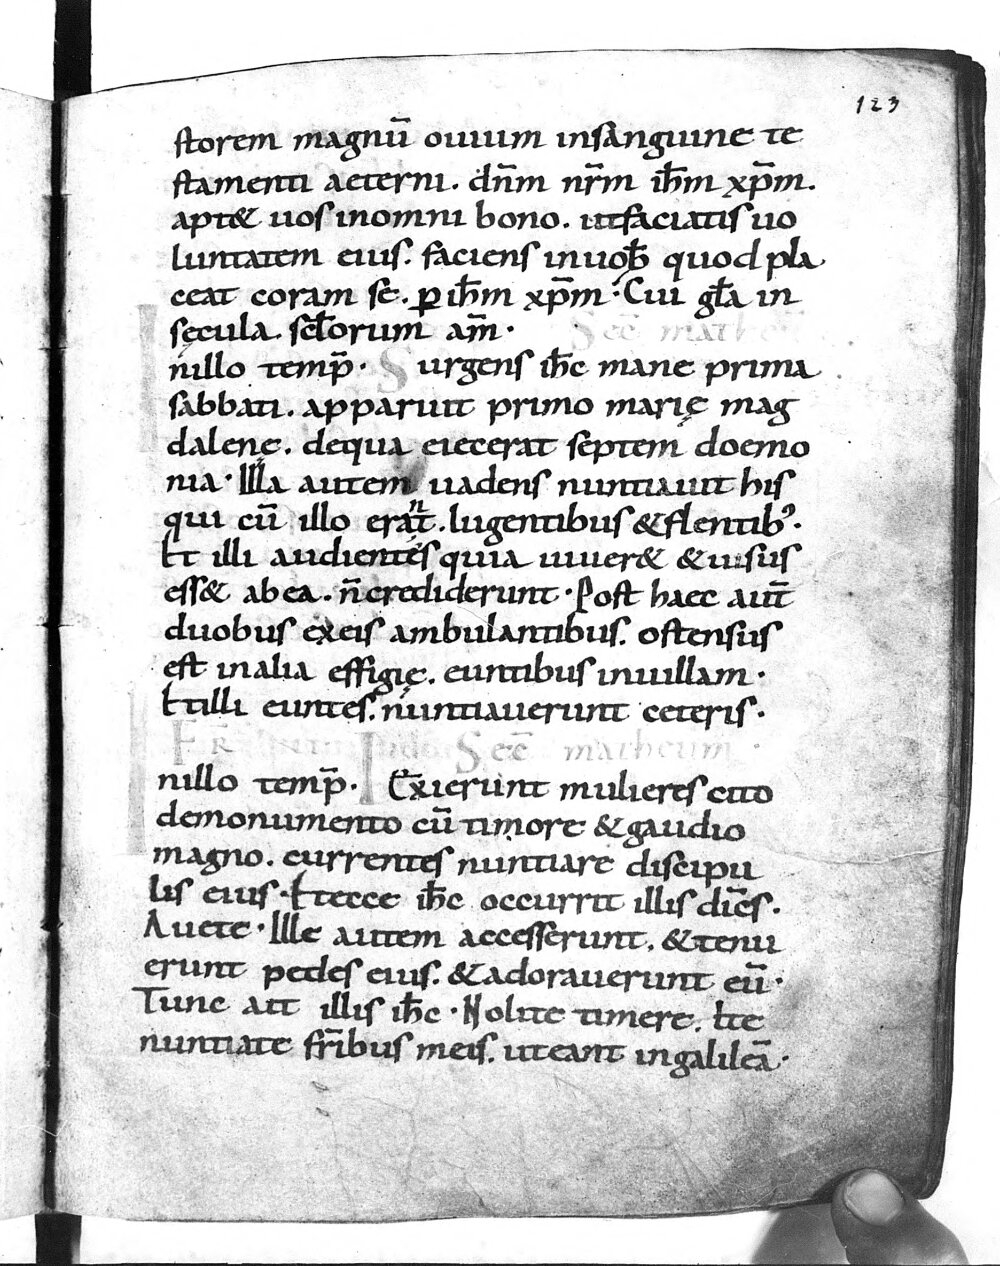 123
storem magnū ouium insanguine te
stamenti aeterni. dn̄m nr̄m ih̄m xp̄m.
apt& uos inomni bono. utfaciatis uo
luntatem eius. faciens inuob̄ quod pla
ceat coram se. ꝑ ih̄m xp̄m· Cui gl̄a in
sęcula. scl̄orum am̄·
Scđ matheū
nillo temp̄· Surgens ih̄c mane prima
sabbati. apparuit primo marię mag
dalenę. dequa eiecerat septem doemo
nia· Illa autem uadens nuntiauit his
qui cū illo erāt. lugentibus &flentibꝰ·
Et illi audientes quia uiuer& &uisus
ess& abea. n̄ crediderunt· Post haec aut̄
duobus exeis ambulantibus. ostensus
est inalia effigię. euntibus inuillam·
Etilli euntes. nuntiauerunt ceteris·
Scđ matheum·
nillo temp̄· Exierunt mulieres cito
demonumento cū timore &gaudio
magno. currentes nuntiare discipu
lis eius· Etecce ih̄c occurrit illis dic̄s·
Auete· Ille autem accesserunt. &tenu
erunt pedes eius. &adorauerunt eū·
Tunc ait illis ih̄c· Nolite timere. Ite
nuntiate fr̄ibus meis. uteant ingalileā·